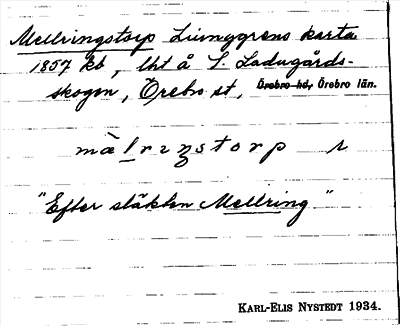 Mellringstorp Ljunggrens karta
1857 kb, lht å S. Ladugårds-
skogen, Örebro st, Örebro hd, Örebro län.
mälrıŋstorp r
"Efter släkten Mellring"
KARL-ELIS NYSTEDT 1934.